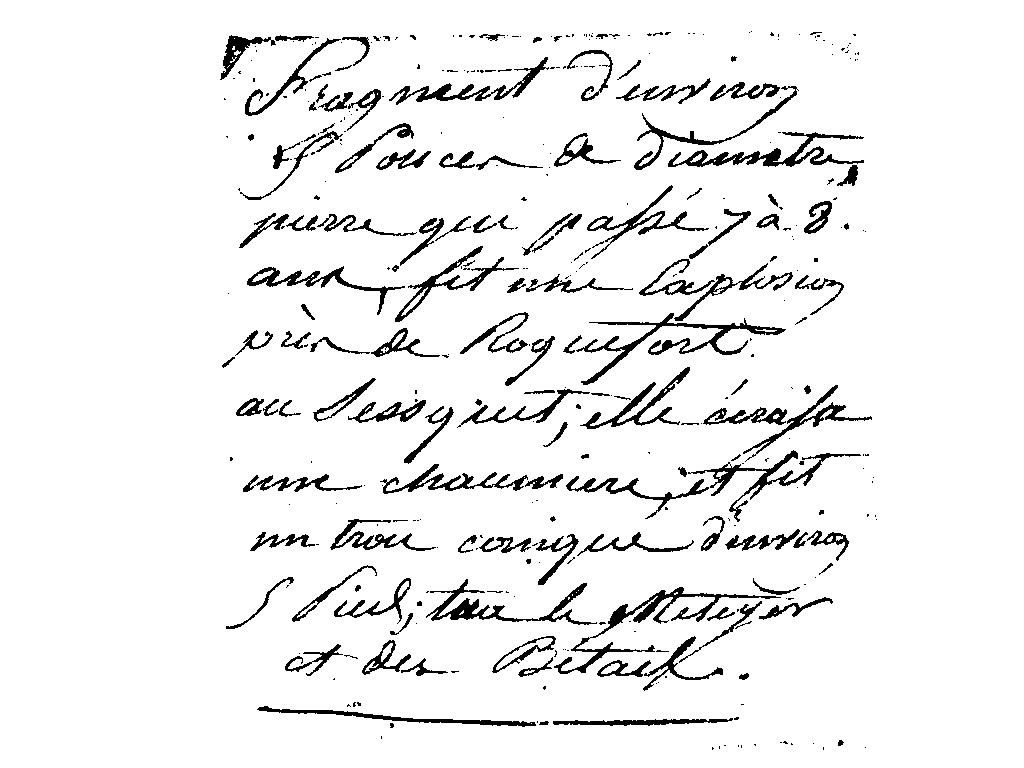 Fragment d'environ
5 Pouces de diametre,
pierre qui passé 7 à 8.
ans, fit une Explosion
près de Roquefort.
au Sessquet; elle écrasa
une chaumiere, et fit
un trou conique d'environ
5 Pieds; tua le Meteyer
et des Bétail.